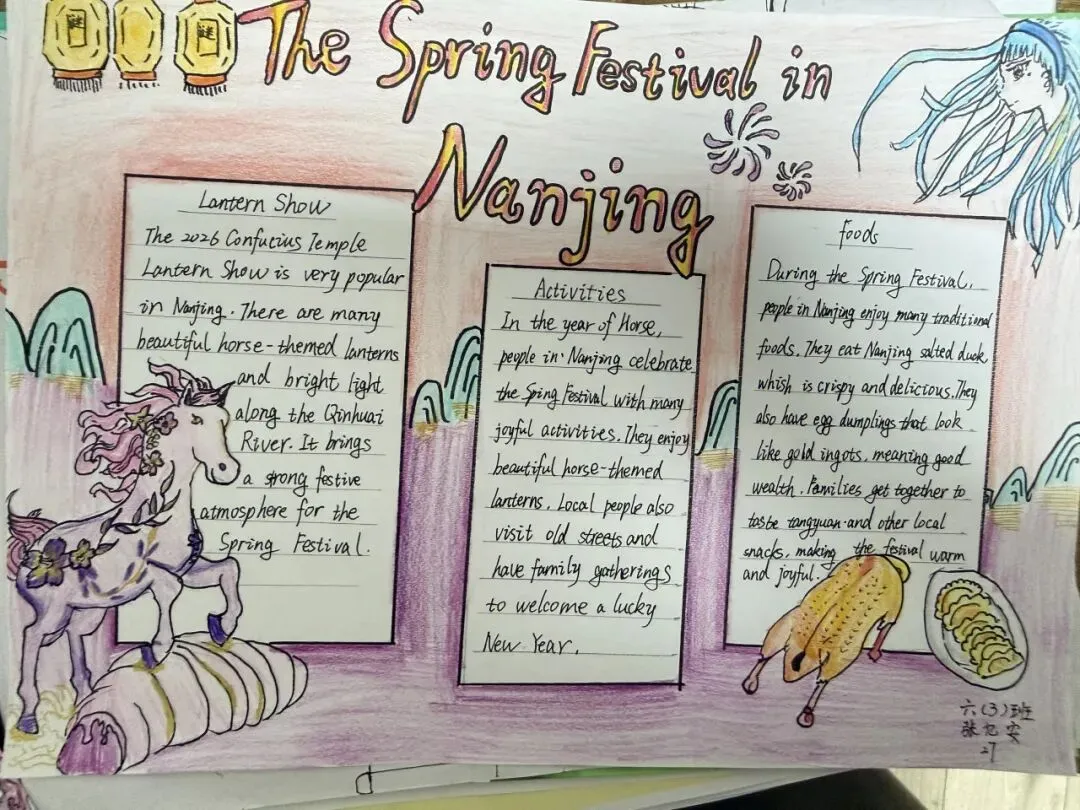 The Spring Festival in
Nanjing
Lantern Show
The 2026 Confucius Temple
Lantern Show is very popular
in Nanjing. There are many
beautiful horse-themed lanterns
and bright light
along the Qinhuai
River. It brings
a strong festive
atmosphere for the
Spring Festival.
Activities
In the year of Horse,
people in Nanjing celebrate
the Spring Festival with many
joyful activities. They enjoy
beautiful horse-themed
lanterns. Local people also
visit old streets and
have family gatherings
to welcome a lucky
New Year.
Foods
During the Spring Festival,
people in Nanjing enjoy many traditional
foods. They eat Nanjing salted duck,
whish is crispy and delicious. They
also have egg dumplings that look
like gold ingots, meaning good
wealth. Families get together to
taste tangyuan and other local
snacks, making the festival warm
and joyful.
六(3)班
张安
27